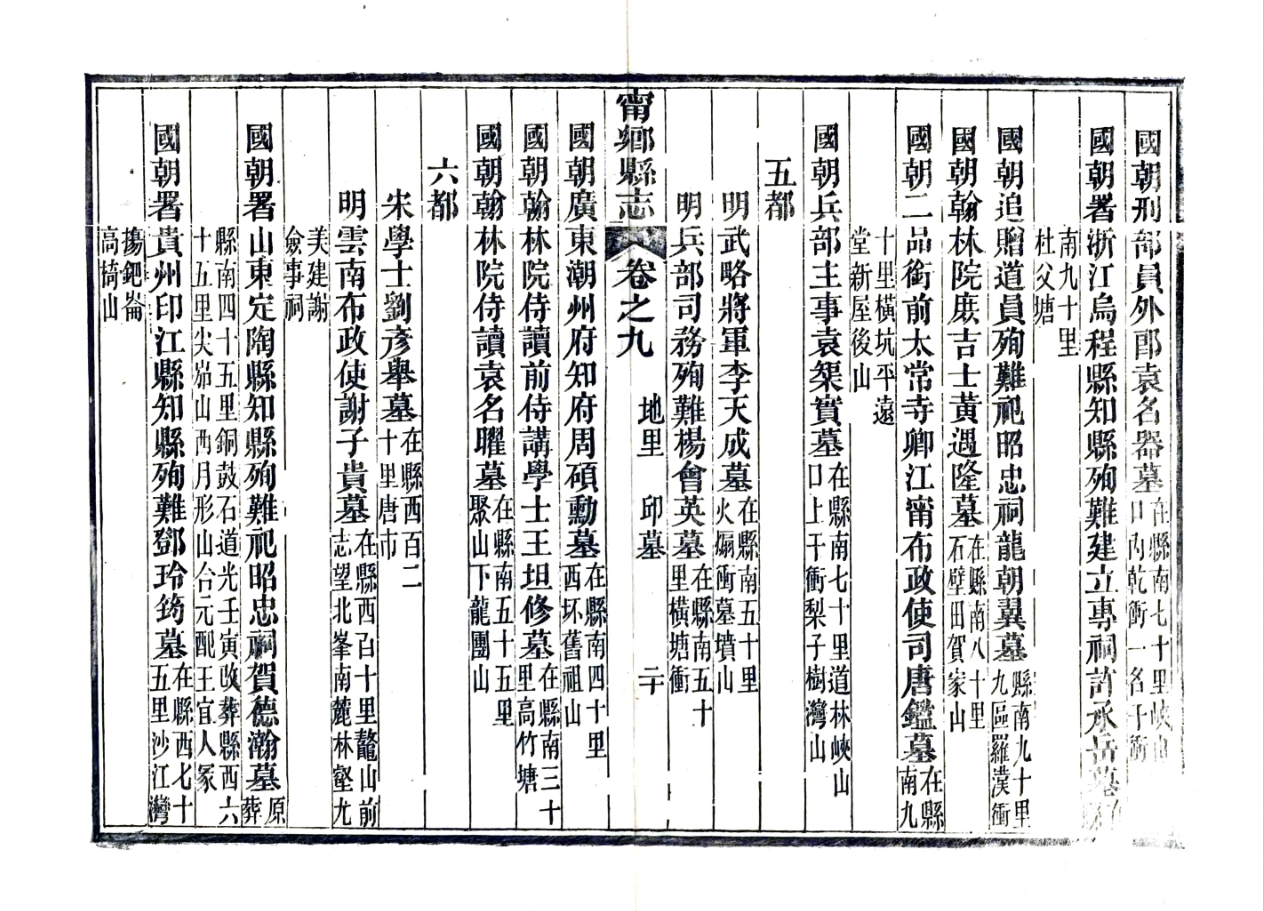 國朝刑部員外郎袁名器墓在縣南七十里峽山口內乾衝一名干衝
國朝署浙江烏程縣知縣殉難建立專祠許承岳墓在縣
南九十里杜父塘
國朝追贈道員殉難祀昭忠祠龍朝翼墓縣南九十里九區羅漢衝
國朝翰林院庶吉士黃遇隆墓在縣南八十里石壁田賀家山
國朝二品銜前太常寺卿江甯布政使司唐鑑墓在縣南九
十里橫坑平遠堂新屋後山
國朝兵部主事袁榘實墓在縣南七十里道林峽山口上干衝梨子樹灣山
五都
明武略將軍李天成墓在縣南五十里火煽衝墓墳山
明兵部司務殉難楊會英墓在縣南五十里橫塘衝
甯鄉縣志 卷之九 地里 邱墓 二十
國朝廣東潮州府知府周碩勳墓在縣南四十里西坏舊祖山
國朝翰林院侍讀前侍講學士王坦修墓在縣南三十里高竹塘
國朝翰林院侍讀袁名曜墓在縣南五十五里聚山下龍團山
六都
宋學士劉彥舉墓在縣西百二十里唐市
明雲南布政使謝子貴墓在縣西百十里鼇山前志望北峯南麓林壑尤
美建謝僉事祠
國朝署山東定陶縣知縣殉難祀昭忠祠賀德瀚墓原葬
縣南四十五里銅鼓石道光壬寅改葬縣西六十五里尖峁山西月形山合元配王宜人冢
國朝署貴州印江縣知縣殉難鄧玲筠墓在縣西七十五里沙江灣
搗鈀崙高犄山